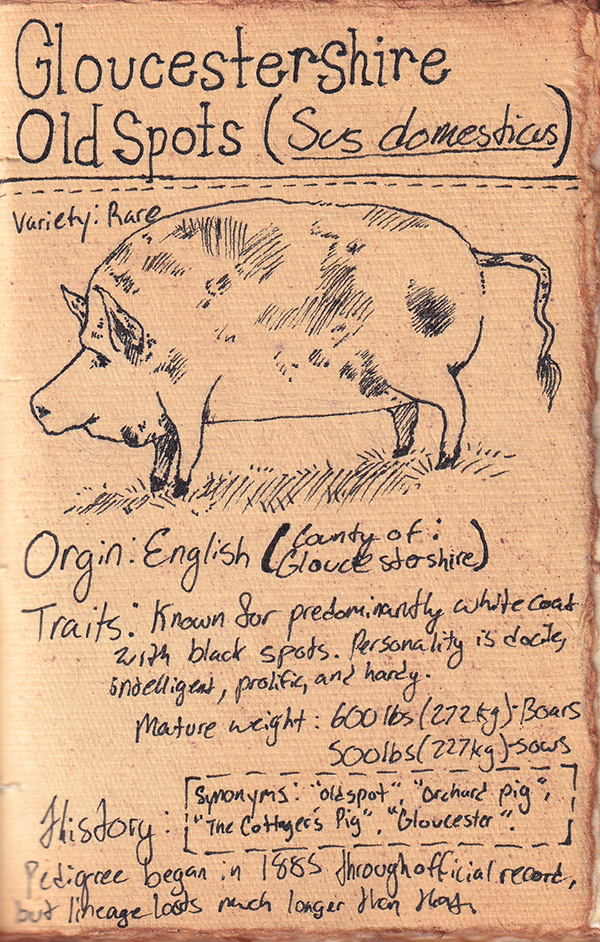 Gloucestershire
Old Spots (Sus domesticus)
Variety: Rare
Orgin: English (County of:
Gloucestershire)
Traits: Known for predominantly white coat
with black spots. Personality is docile,
intelligent, prolific, and hardy.
Mature weight: 600lbs (272kg)-Boars
500lbs (227kg)-sows
Synonyms: "oldspot", "Orchard pig",
History: "The Cottager's Pig", "Gloucester".
Pedigree began in 1885 through official record,
but lineage lasts much longer than that.